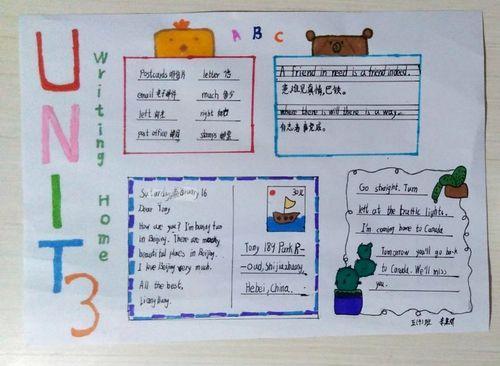 UNIT 3
Writing Home
A B C
Postcards 明信片 letter 信
email 电子邮件 much 多少
left right
post office 邮局 stamps 邮票
A friend in need is a friend indeed.
患难见真情,
where there is will there is a way.
有志者事竟成.
Saturday February 16
Dear Tony
How are you? I'm having fun
in Beijing. There are many
beautiful places in Beijing.
I love Beijing very much.
All the best,
Tony 184 Park R-
oad, Shijiazhuang,
Hebei, China.
Go straight. Turn
left at the traffic lights.
I'm coming home to Canada
Tomorrow you'll go back
to Canada. We'll miss
you.